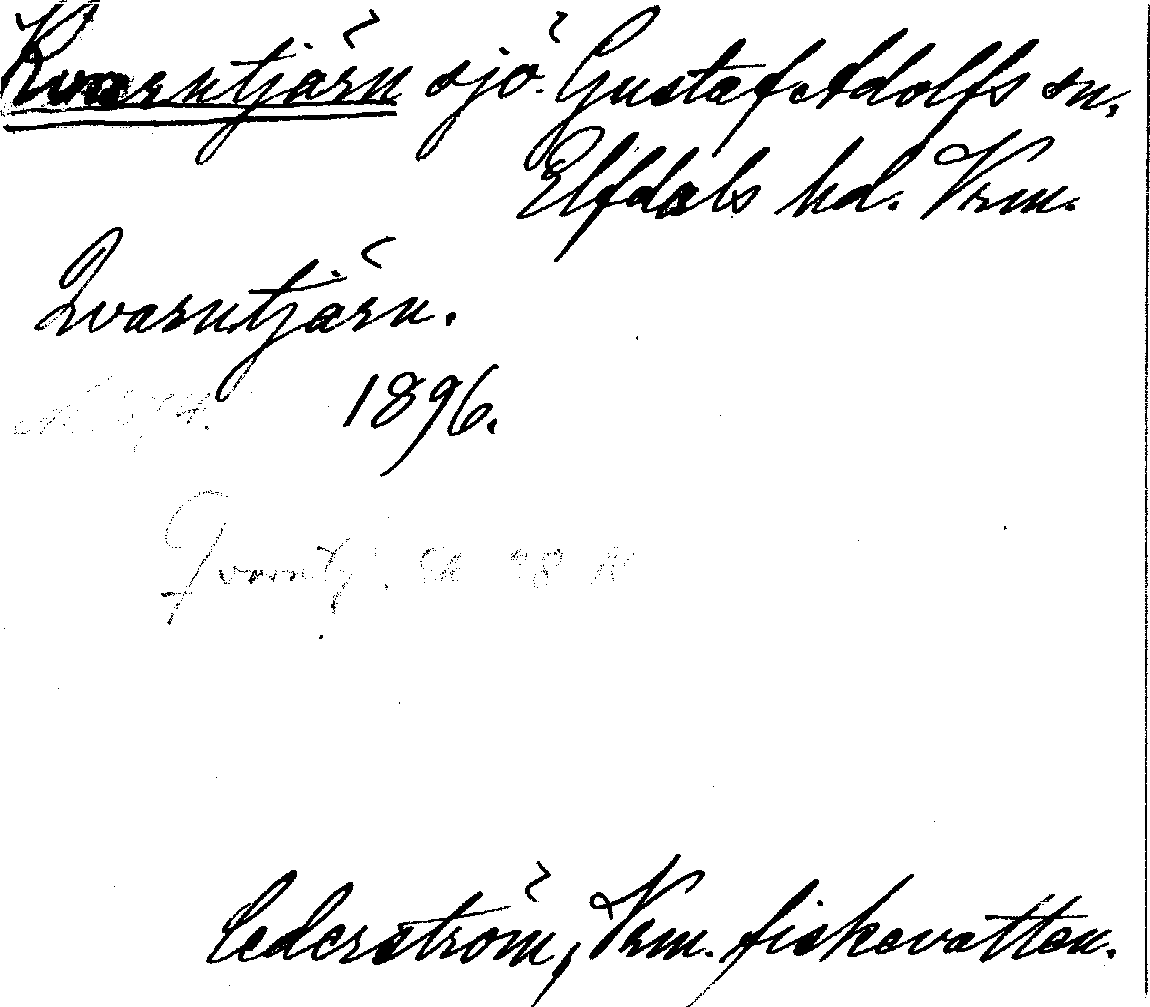 Kvarntjärn sjö. Gustaf Adolfs sn.
Elfdals hd. Vrm.
Qvarntjärn.
1896.
Qvarntj.
Cederström, Vrm. fiskevatten.